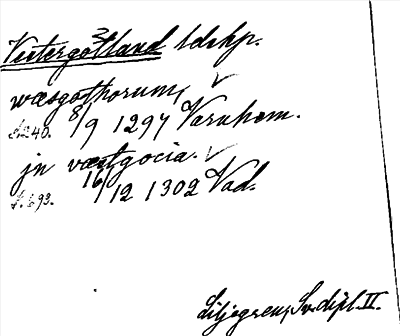 Vestergötland ldskp.
wæsgothorum, ✓
s. 240. 8/9 1297 Varnhem.
jn væstgocia. ✓
s. 393. 16/12 1302 Vad.
Liljegren, Sv. dipl. II.